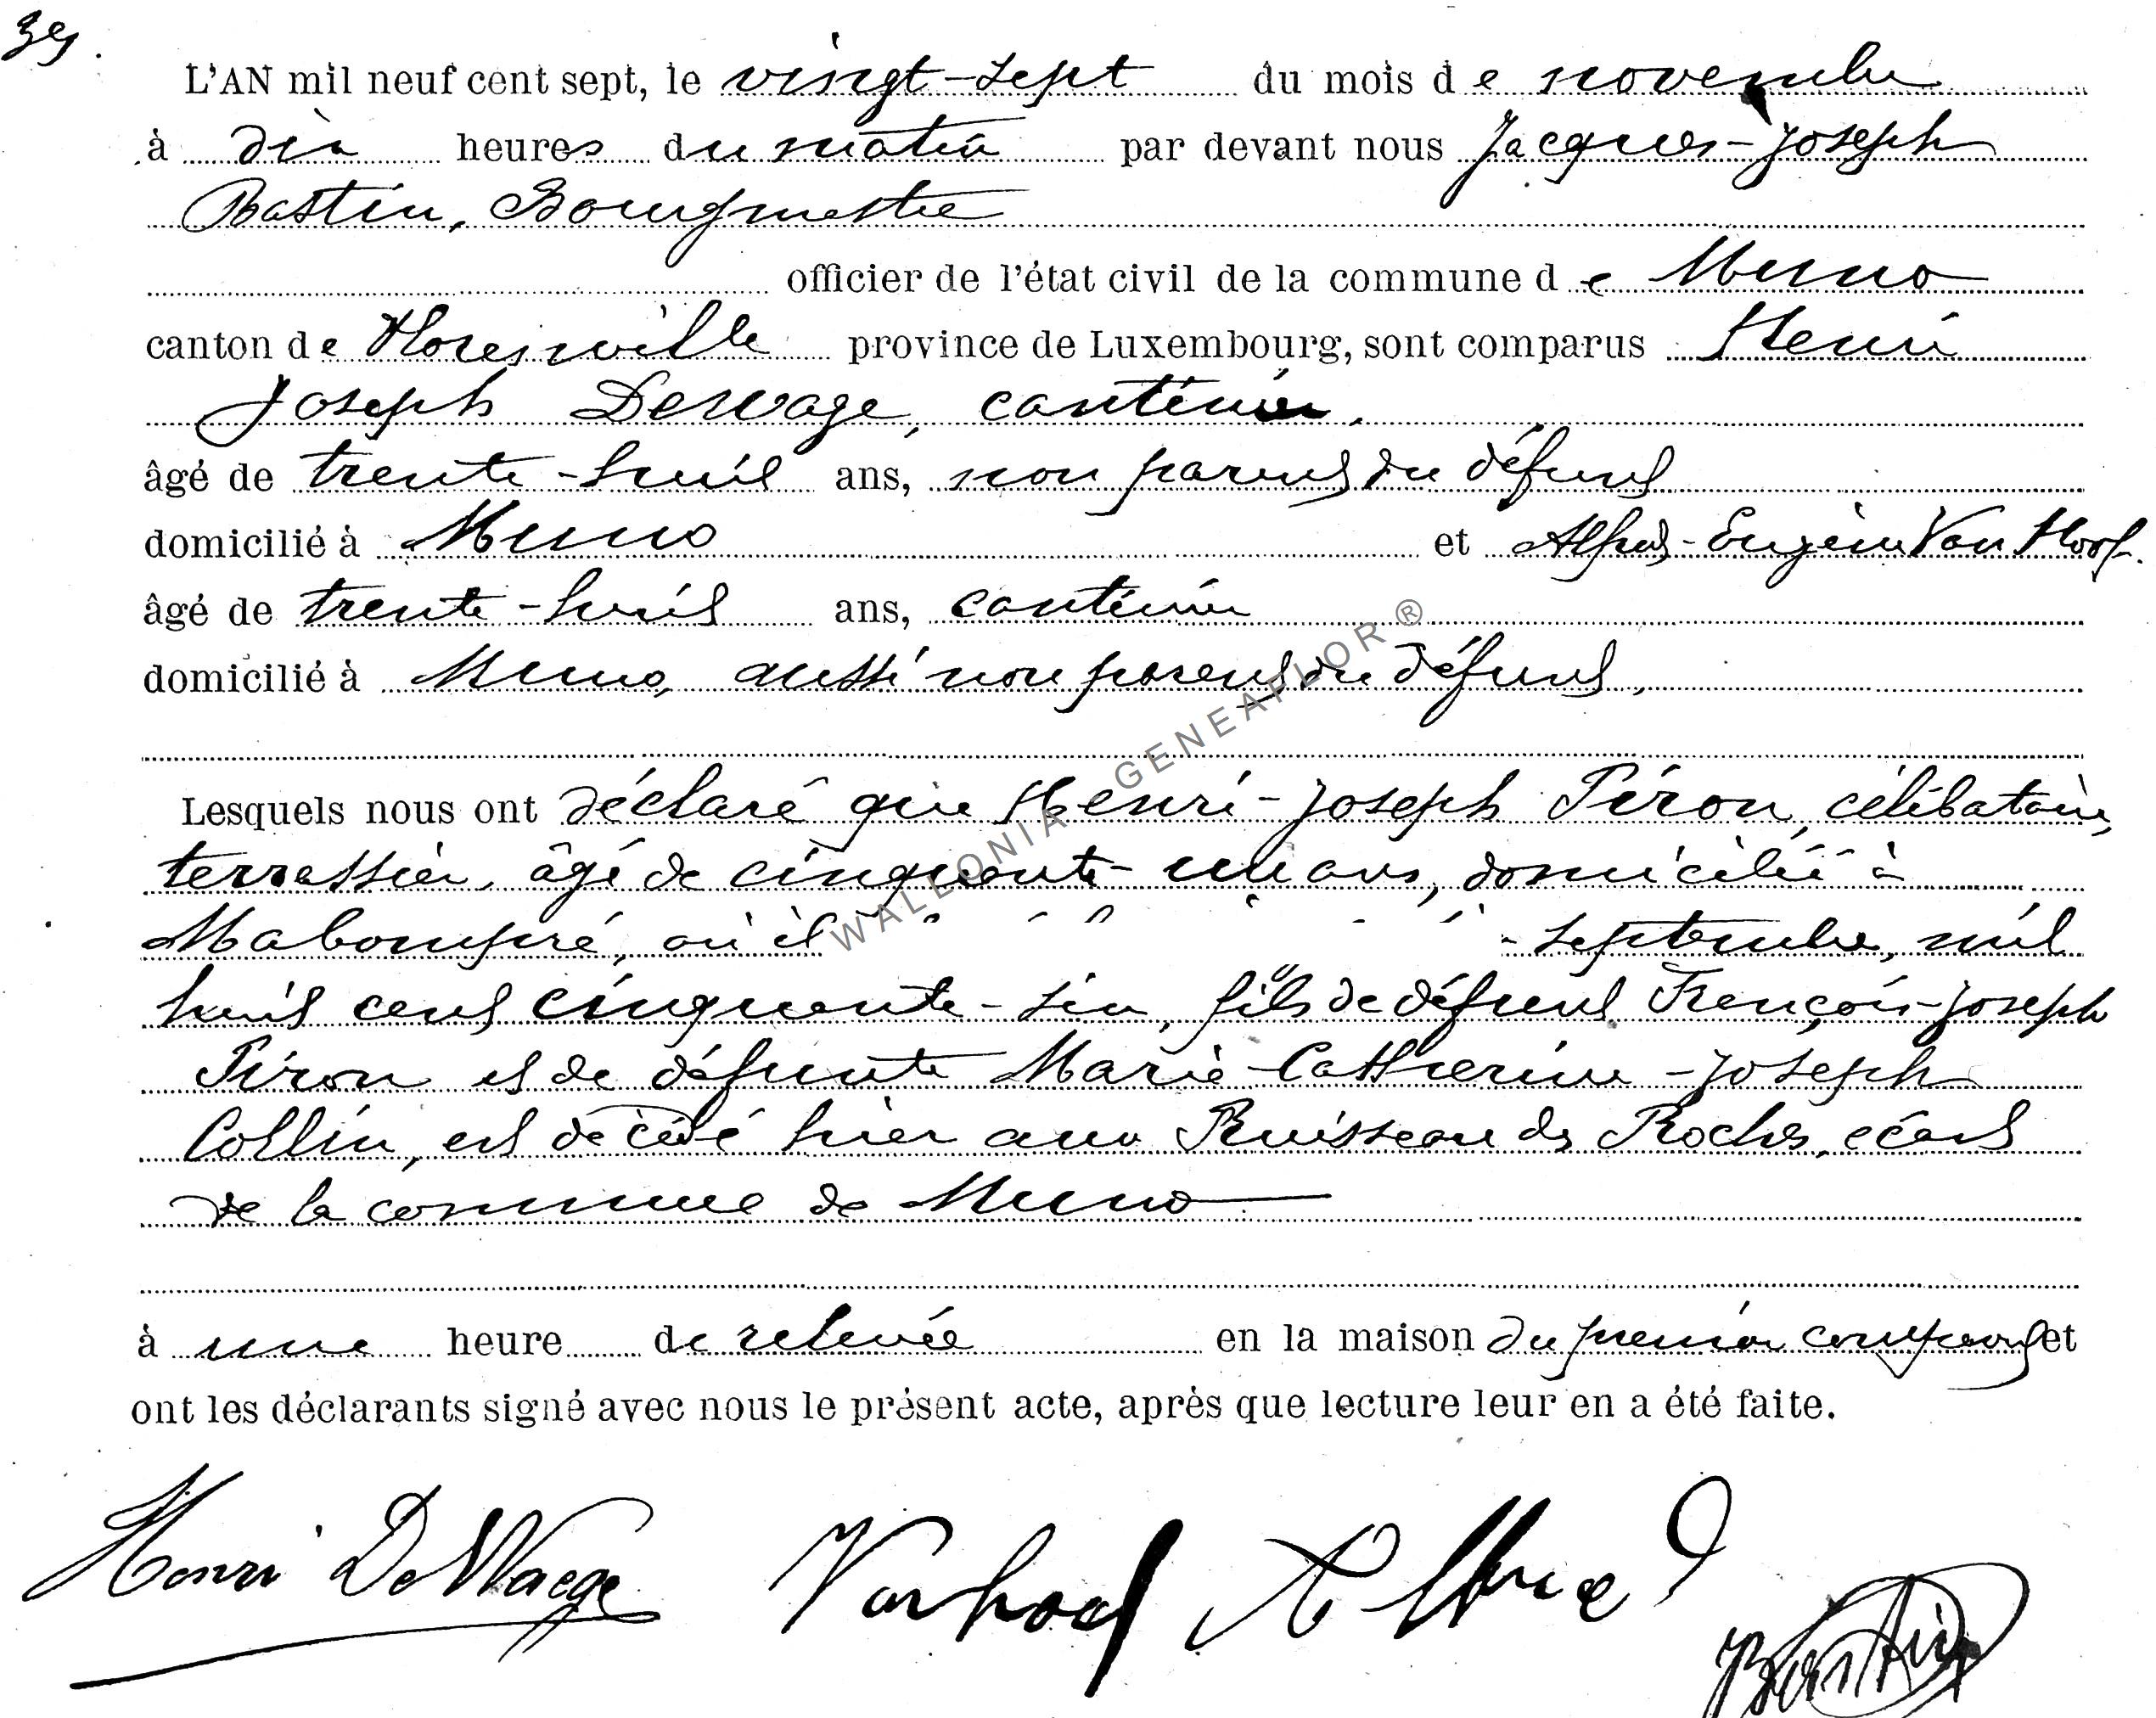 39.
L'AN mil neuf cent sept, le vingt-sept du mois de novembre
à dix heures du matin par devant nous Jacques-Joseph
Bastin, Bourgmestre
officier de l'état civil de la commune de Muno
canton de Florenville province de Luxembourg, sont comparus Henri
Joseph Dewage, cantinier,
âgé de trente-huit ans, non parent du défunt
domicilié à Muno et Alfred-Eugène Van Hoof.
âgé de trente-huit ans, cantinier
domicilié à Muno, aussi non parent du défunt,
Lesquels nous ont déclaré que Henri-Joseph Piron, célibataire,
terrassier, âgé de cinquante-un ans, domicilié à
Mabompré, où il septembre, mil
huit cent cinquante-six, fils de défunt François-Joseph
Piron et de défunte Marie-Catherine-Joseph
Collin, est décédé hier au Ruisseau des Roches, écart
de la commune de Muno
à une heure de relevée en la maison du premier comparant et
ont les déclarants signé avec nous le présent acte, après que lecture leur en a été faite.
Henri DeWaege Vanhoof Alfred Bastin
WALLONIA GENEAFLOR ®